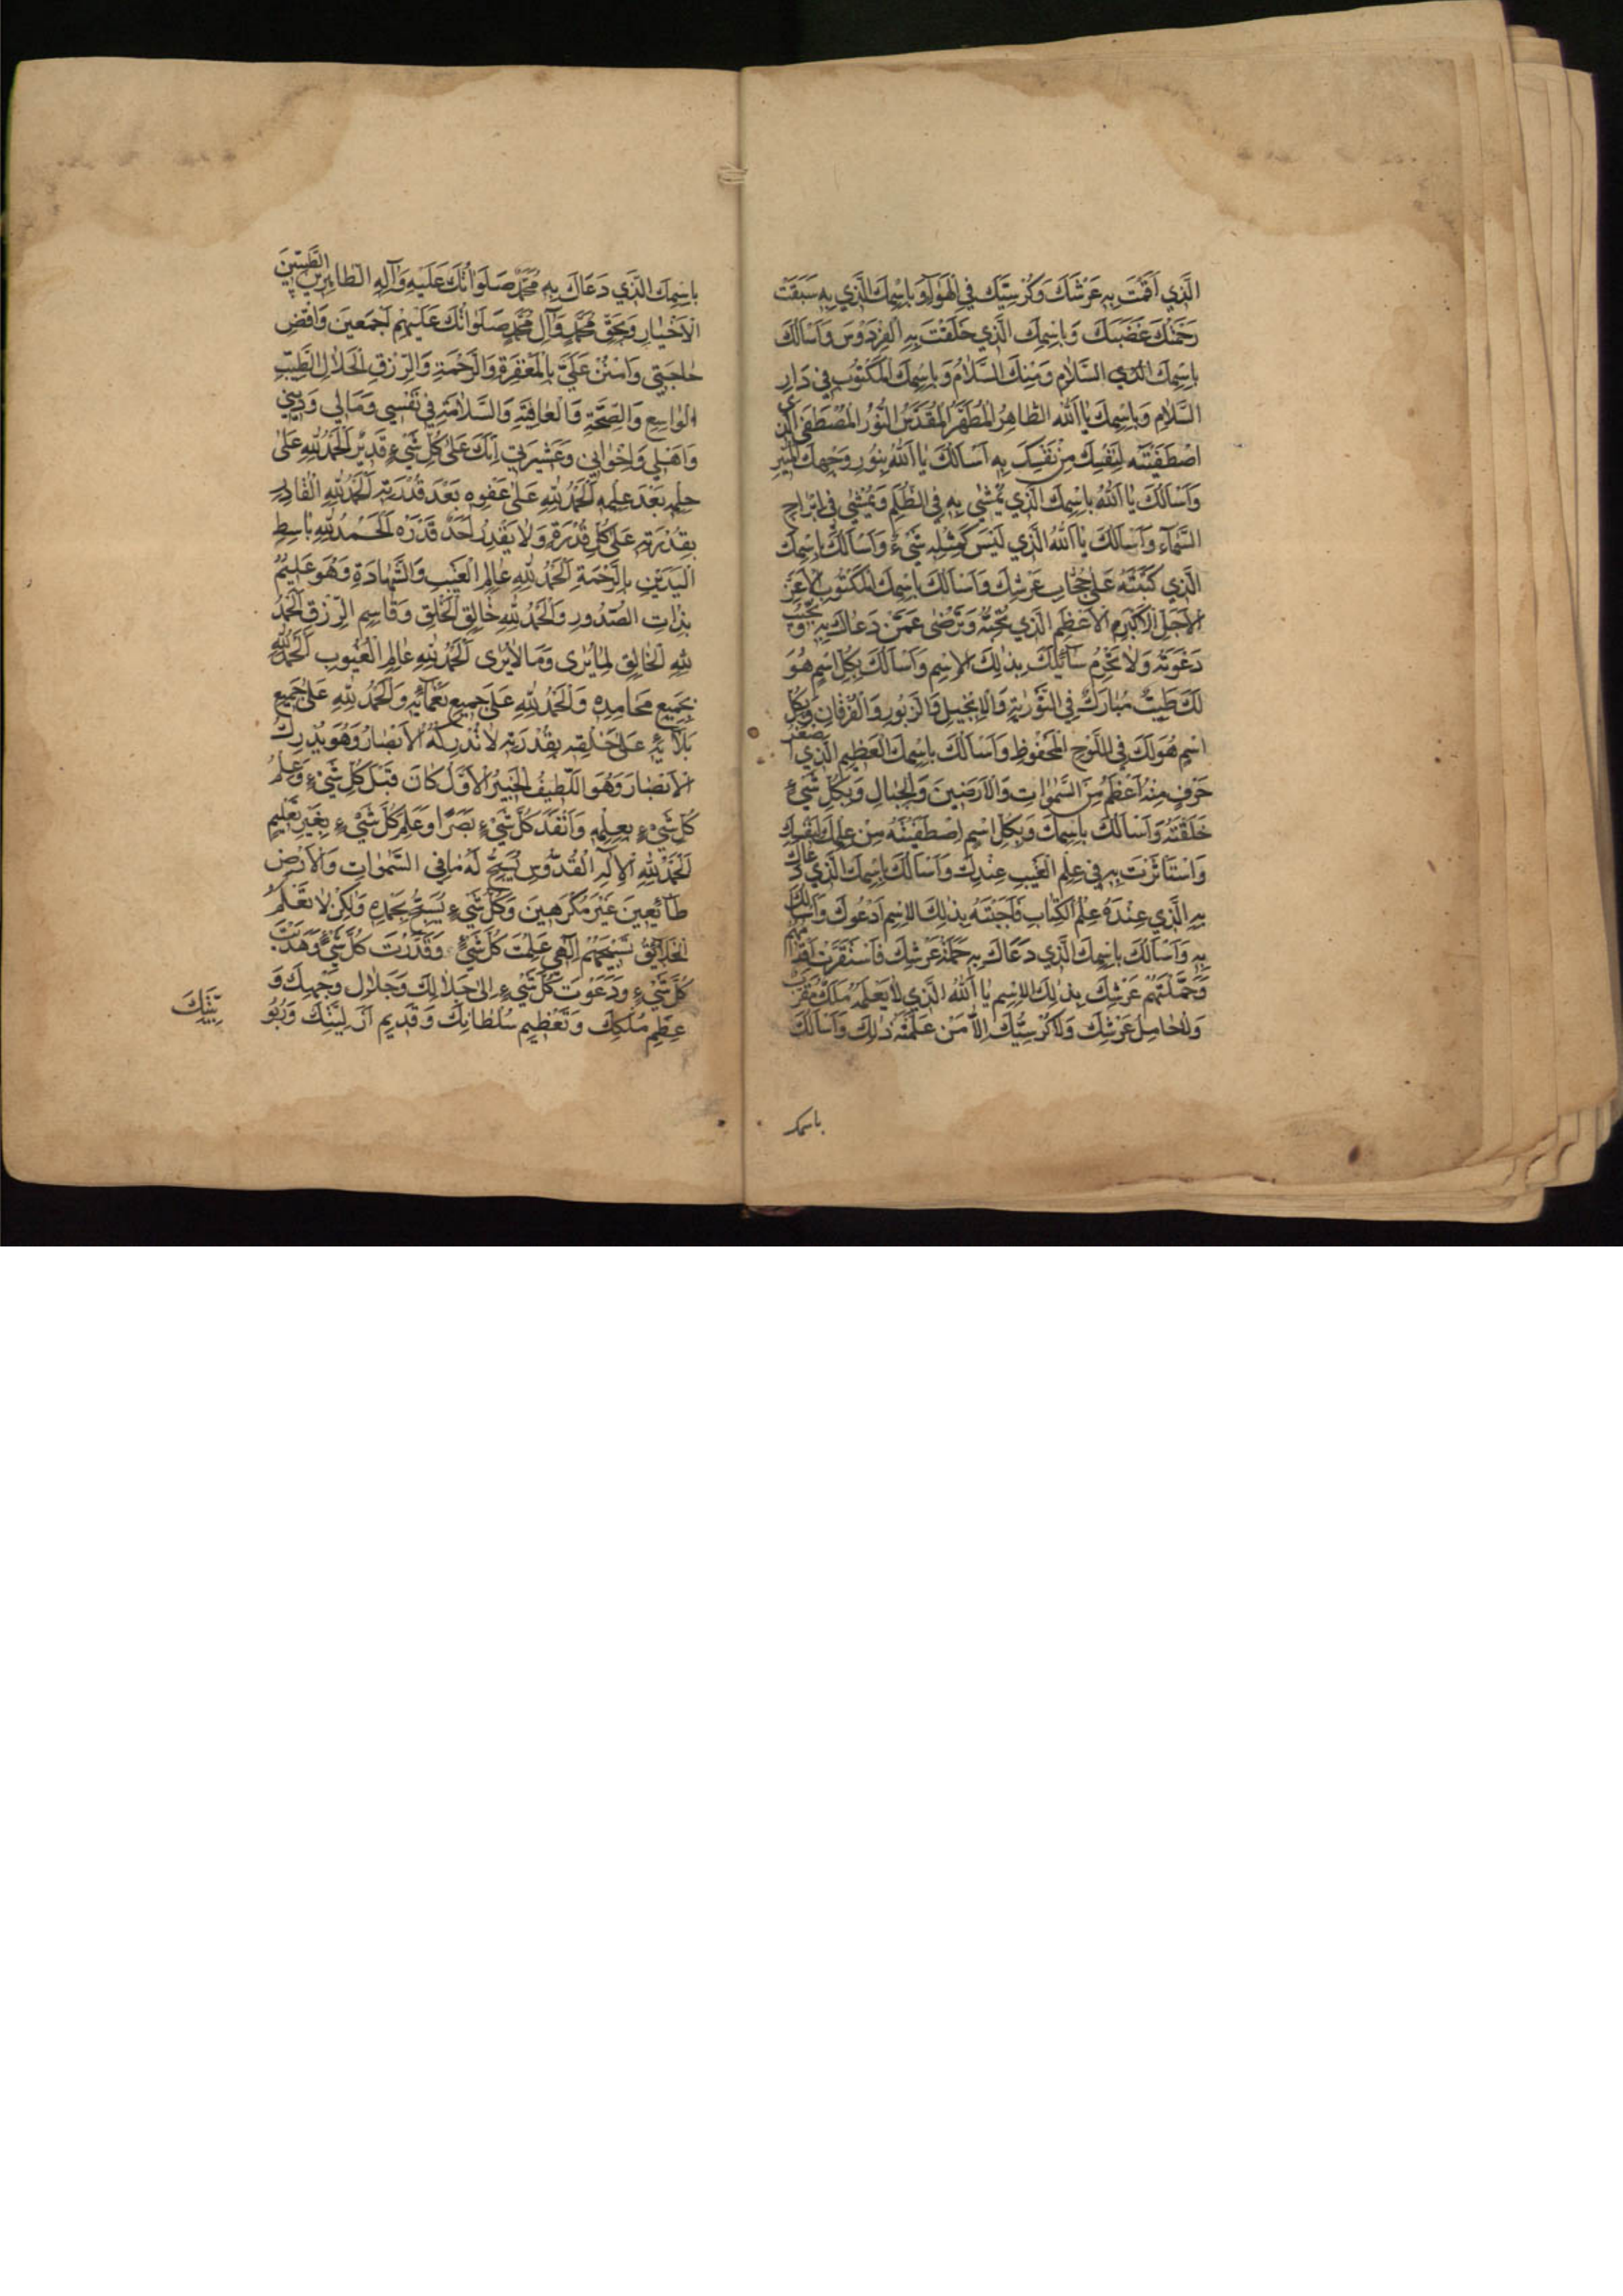 الَّذِي أَقَمْتَ بِهِ عَرْشَكَ وَكُرْسِيَّكَ فِي الْهَوَاءِ وَبِاسْمِكَ الَّذِي بِهِ سَبَقَتْ
رَحْمَتُكَ غَضَبَكَ وَبِاسْمِكَ الَّذِي خَلَقْتَ بِهِ الْفِرْدَوْسَ وَأَسْأَلُكَ
بِاسْمِكَ الَّذِي السَّلَامِ وَمِنْكَ السَّلَامُ وَبِاسْمِكَ الْمَكْتُوبِ فِي دَارِ
السَّلَامِ وَبِاسْمِكَ يَا اللَّهُ الطَّاهِرُ الْمُطَهَّرُ الْمُقَدَّسُ النُّورُ الْمُصْطَفَى الَّذِي
اصْطَفَيْتَهُ لِنَفْسِكَ مِنْ نَفْسِكَ بِهِ أَسْأَلُكَ يَا اللَّهُ بِنُورِ وَجْهِكَ الْمُنِيرِ
وَأَسْأَلُكَ يَا اللَّهُ بِاسْمِكَ الَّذِي يُمْشَى بِهِ فِي الظُّلَمِ وَيُمْشَى فِي أَبْرَاجِ
السَّمَاءِ وَأَسْأَلُكَ يَا اللَّهُ الَّذِي لَيْسَ كَمِثْلِهِ شَيْءٌ وَأَسْأَلُكَ بِاسْمِكَ
الَّذِي كَتَبْتَهُ عَلَى حُجَابِ عَرْشِكَ وَأَسْأَلُكَ بِاسْمِكَ الْمَكْتُوبِ الْأَعَزِّ
الْأَجَلِّ الْأَكْبَرِ الْأَعْظَمِ الَّذِي تُحِبُّهُ وَتَرْضَى عَمَّنْ دَعَاكَ بِهِ وَتُجِيبُ
دَعْوَتَهُ وَلَا تَحْرِمُ سَائِلَكَ بِذَلِكَ الْاِسْمِ وَأَسْأَلُكَ بِكُلِّ اسْمٍ هُوَ
لَكَ طَيِّبٌ مُبَارَكٌ فِي التَّوْرَيةِ وَالْإِنْجِيلِ وَالزَّبُورِ وَالْفُرْقَانِ وَبِكُلِّ
اسْمٍ هُوَ لَكَ فِي اللَّوْحِ الْمَحْفُوظِ وَأَسْأَلُكَ بِاسْمِكَ الْعَظِيمِ الَّذِي أَصْغَرُ
حَرْفٍ مِنْهُ أَعْظَمُ مِنَ السَّمَوَاتِ وَالْأَرَضِينَ وَالْجِبَالِ وَبِكُلِّ شَيْءٍ
خَلَقْتَهُ وَأَسْأَلُكَ بِاسْمِكَ وَبِكُلِّ اسْمٍ اصْطَفَيْتَهُ مِنْ عِلْمِكَ لِنَفْسِكَ
وَاسْتَأْثَرْتَ بِهِ فِي عِلْمِ الْغَيْبِ عِنْدَكَ وَأَسْأَلُكَ بِاسْمِكَ الَّذِي دَعَاكَ
بِهِ الَّذِي عِنْدَهُ عِلْمُ الْكِتَابِ فَأَجَبْتَهُ بِذَلِكَ الْاِسْمِ أَدْعُوكَ وَأَسْأَلُكَ
بِهِ وَأَسْأَلُكَ بِاسْمِكَ الَّذِي دَعَاكَ بِهِ حَمَلَةُ عَرْشِكَ فَاسْتَقَرَّتْ أَقْدَامُهُمْ
وَحَمَّلْتَهُمْ عَرْشَكَ بِذَلِكَ الْاِسْمِ يَا اللَّهُ الَّذِي لَا يَعْلَمُهُ مَلَكٌ مُقَرَّبٌ
وَلَا حَامِلُ عَرْشِكَ وَلَا كُرْسِيِّكَ إِلَّا مَنْ عَلَّمْتَهُ ذَلِكَ وَأَسْأَلُكَ
باسمك
بِاسْمِكَ الَّذِي دَعَاكَ بِهِ مُحَمَّدٌ صَلَوَاتُكَ عَلَيْهِ وَآلِهِ الطَّاهِرِينَ الطَّيِّبِينَ
الْأَخْيَارِ وَبِحَقِّ مُحَمَّدٍ وَآلِ مُحَمَّدٍ صَلَوَاتُكَ عَلَيْهِمْ أَجْمَعِينَ وَاقْضِ
حَاجَتِي وَامْنُنْ عَلَيَّ بِالْمَغْفِرَةِ وَالرَّحْمَةِ وَالرِّزْقِ الْحَلَالِ الطَّيِّبِ
الْوَاسِعِ وَالصِّحَّةِ وَالْعَافِيَةِ وَالسَّلَامَةِ فِي نَفْسِي وَمَالِي وَدِينِي
وَأَهْلِي وَإِخْوَانِي وَعَشِيرَتِي إِنَّكَ عَلَى كُلِّ شَيْءٍ قَدِيرٌ الْحَمْدُ لِلَّهِ عَلَى
حِلْمِهِ بَعْدَ عِلْمِهِ الْحَمْدُ لِلَّهِ عَلَى عَفْوِهِ بَعْدَ قُدْرَتِهِ الْحَمْدُ لِلَّهِ الْقَادِرِ
بِقُدْرَتِهِ عَلَى كُلِّ قُدْرَةٍ وَلَا يَقْدِرُ أَحَدٌ قَدْرَهُ الْحَمْدُ لِلَّهِ بَاسِطِ
الْيَدَيْنِ بِالرَّحْمَةِ الْحَمْدُ لِلَّهِ عَالِمِ الْغَيْبِ وَالشَّهَادَةِ وَهُوَ عَلِيمٌ
بِذَاتِ الصُّدُورِ وَالْحَمْدُ لِلَّهِ خَالِقِ الْخَلْقِ وَقَاسِمِ الرِّزْقِ الْحَمْدُ
لِلَّهِ الْخَالِقِ لِمَا يُرَى وَمَا لَا يُرَى الْحَمْدُ لِلَّهِ عَالِمِ الْغُيُوبِ الْحَمْدُ لِلَّهِ
بِجَمِيعِ مَحَامِدِهِ وَالْحَمْدُ لِلَّهِ عَلَى جَمِيعِ نَعْمَائِهِ وَالْحَمْدُ لِلَّهِ عَلَى جَمِيعِ
بَلَائِهِ عَلَى خَلْقِهِ بِقُدْرَتِهِ لَا تُدْرِكُهُ الْأَبْصَارُ وَهُوَ يُدْرِكُ
الْأَبْصَارَ وَهُوَ اللَّطِيفُ الْخَبِيرُ الْأَوَّلُ كَانَ قَبْلَ كُلِّ شَيْءٍ وَعَلِمَ
كُلَّ شَيْءٍ بِعِلْمِهِ وَأَنْفَذَ كُلَّ شَيْءٍ بَصَرًا وَعَلِمَ كُلَّ شَيْءٍ بِغَيْرِ تَعْلِيمٍ
الْحَمْدُ لِلَّهِ الْإِلَهِ الْقُدُّوسِ يُسَبِّحُ لَهُ مَا فِي السَّمَوَاتِ وَالْأَرْضِ
طَائِعِينَ غَيْرَ مُكْرَهِينَ وَكُلُّ شَيْءٍ يُسَبِّحُ بِحَمْدِهِ وَلَكِنْ لَا تَعْلَمُ
الْخَلَائِقُ تَسْبِيحَهُمْ إِلَهِي عَلِمْتَ كُلَّ شَيْءٍ وَقَدَّرْتَ كُلَّ شَيْءٍ وَهَدَيْتَ
كُلَّ شَيْءٍ وَدَعَوْتَ كُلَّ شَيْءٍ إِلَى جَلَالِكَ وَجَلَالِ وَجْهِكَ وَ
عِظَمِ مُلْكِكَ وَتَعْظِيمِ سُلْطَانِكَ وَقَدِيمِ أَزَلِيَّتِكَ وَرُبُو
بِيَّتِكَ